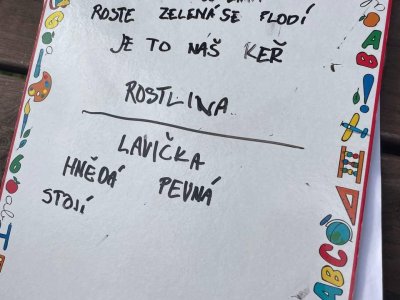 ROSTE ZELENÁ SE FLODÍ
JE TO NÁŠ KEŘ
ROSTLINA
LAVIČKA
HNĚDÁ PEVNÁ
STOJÍ
AB!
ABC